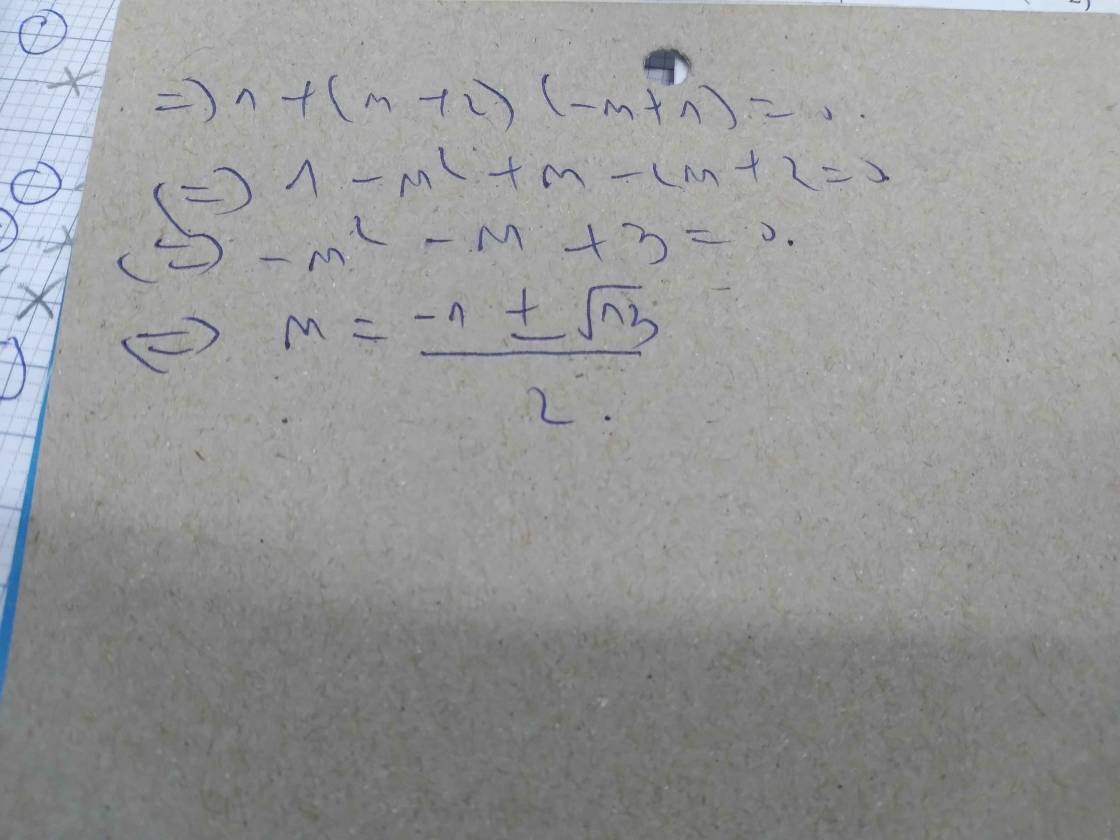 => 1 + (m + 2) (-m + 1) = 0.
<=> 1 - m² + m - 2m + 2 = 0
<=> -m² - m + 3 = 0.
<=> m = (-1 ± √13) / 2.